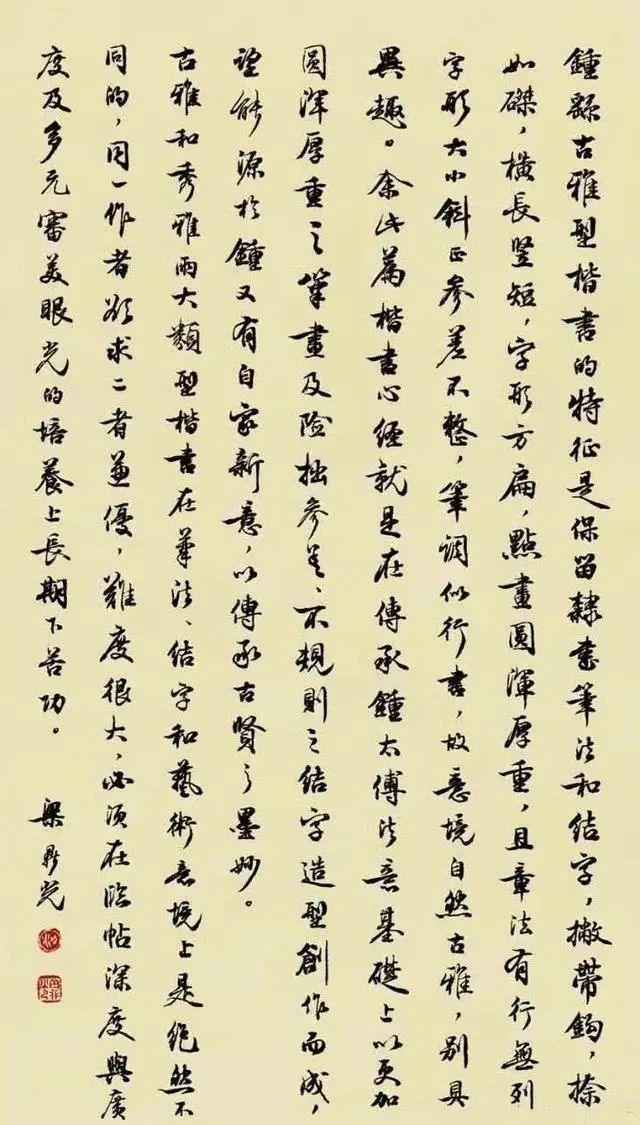 鍾繇古雅型楷書的特征是保留隸書筆法和結字，撇帶鈎，捺
如磔，橫長竖短，字形方扁，點畫圓渾厚重，且章法有行無列
字形大小斜正参差不整，筆調似行書，故意境自然古雅，別具
異趣。余此篇楷書心經就是在傳承鍾太傅法意基礎上以更加
圓渾厚重之筆畫及险拙参差、不規則之結字造型創作而成，
望能源於鍾又有自家新意，以傳承古賢之墨妙。
古雅和秀雅兩大類型楷書在筆法、結字和藝術意境上是绝然不
同的，同一作者欲求二者兼優，難度很大，必须在临帖深度與廣
度及多元審美眼光的培養上長期下苦功。
梁鼎光